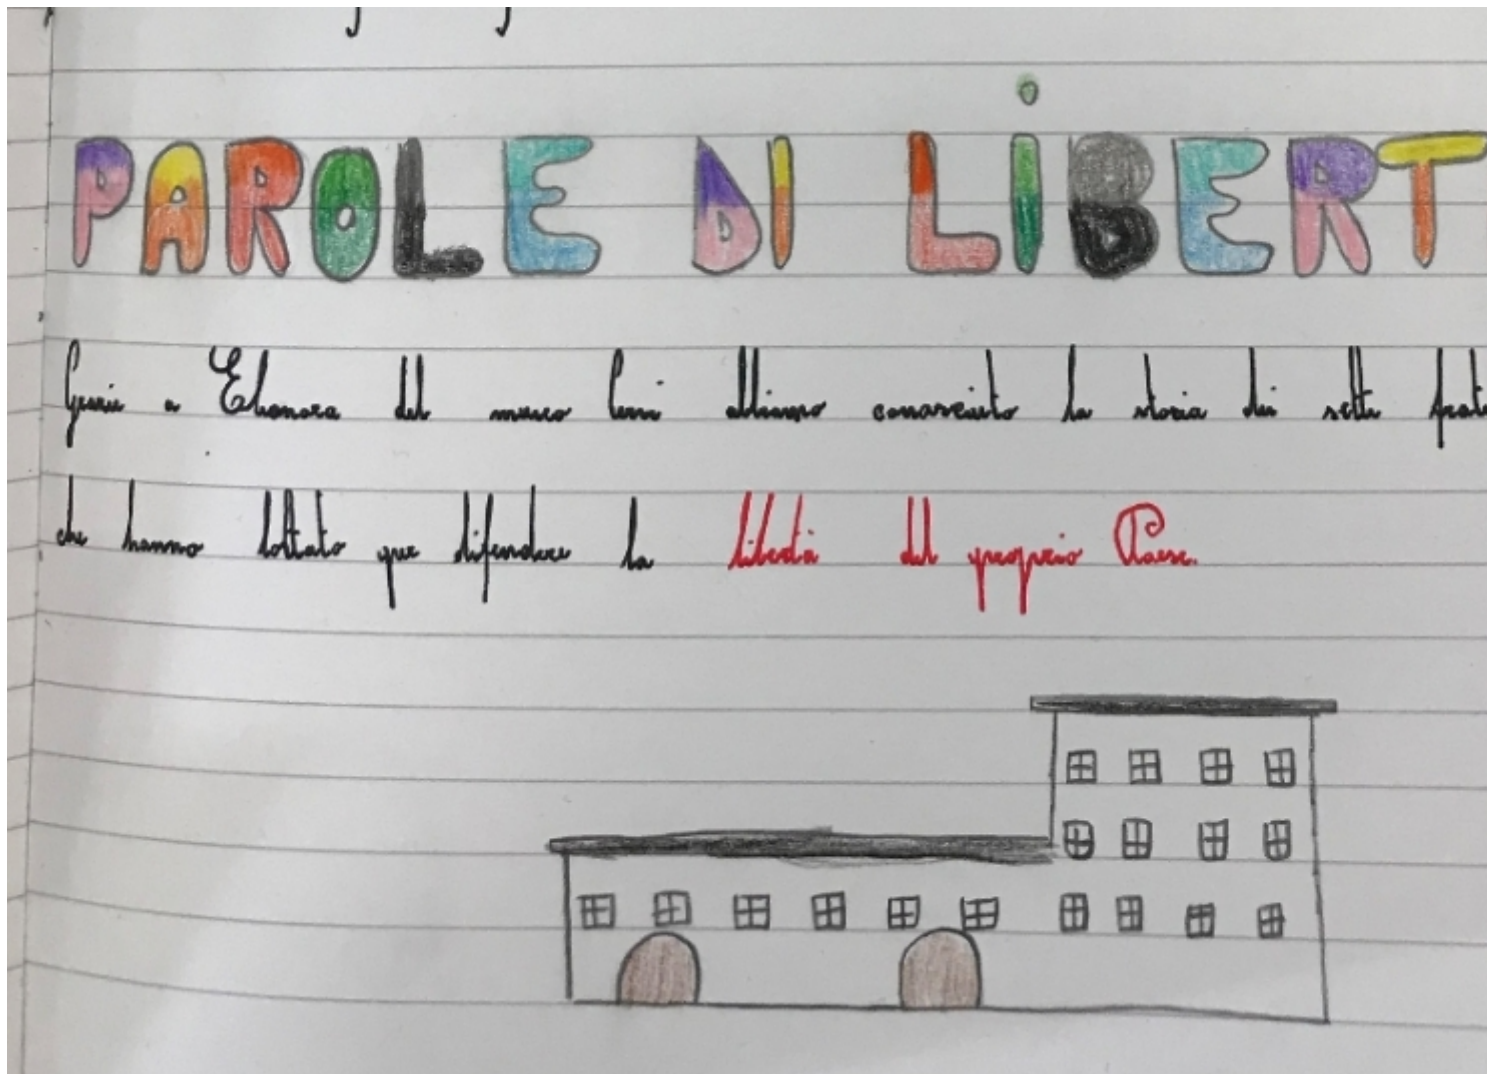 PAROLE DI LiBERT
Grazie a Elonora del museo Cervi abbiamo conosciuto la storia dei sette frate
che hanno lottato per difendere la libertà del proprio Paese.